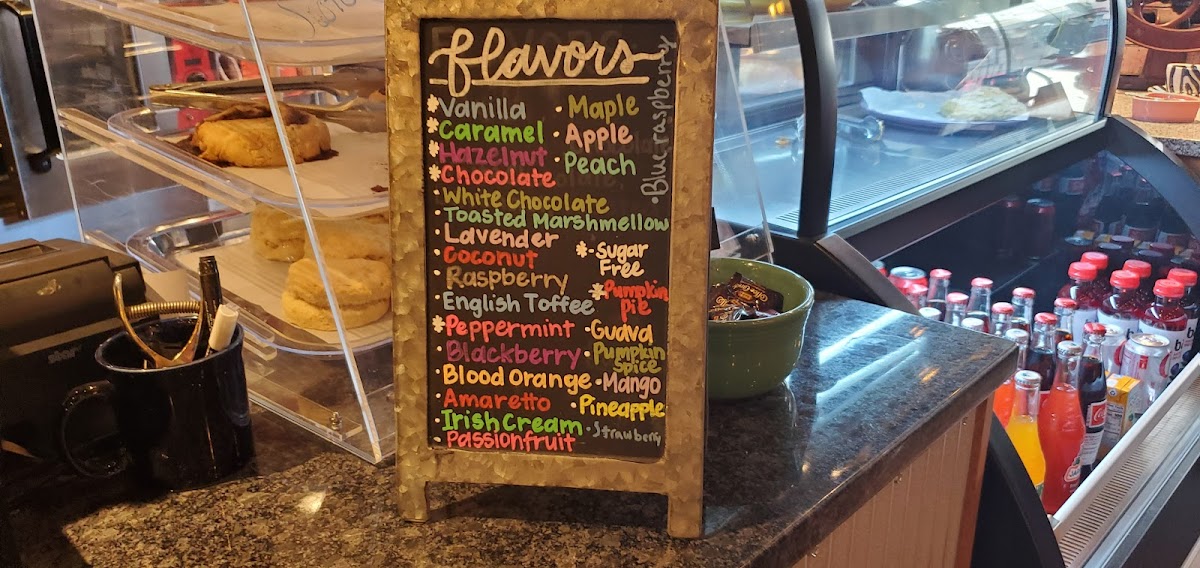 flavors
*Vanilla
*Caramel
*Hazelnut
*Chocolate
·White Chocolate
·Toasted Marshmellow
·Lavender
·Coconut
·Raspberry
·English Toffee
*Peppermint
·Blackberry
·Blood Orange
·Amaretto
·Irish Cream
·Passionfruit
·Maple
·Apple
·Peach
*-Sugar
Free
*Pumpkin
pie
·Guava
·Pumpkin
spice
·Mango
·Pineapple
·Strawberry
·Blueraspberry
star